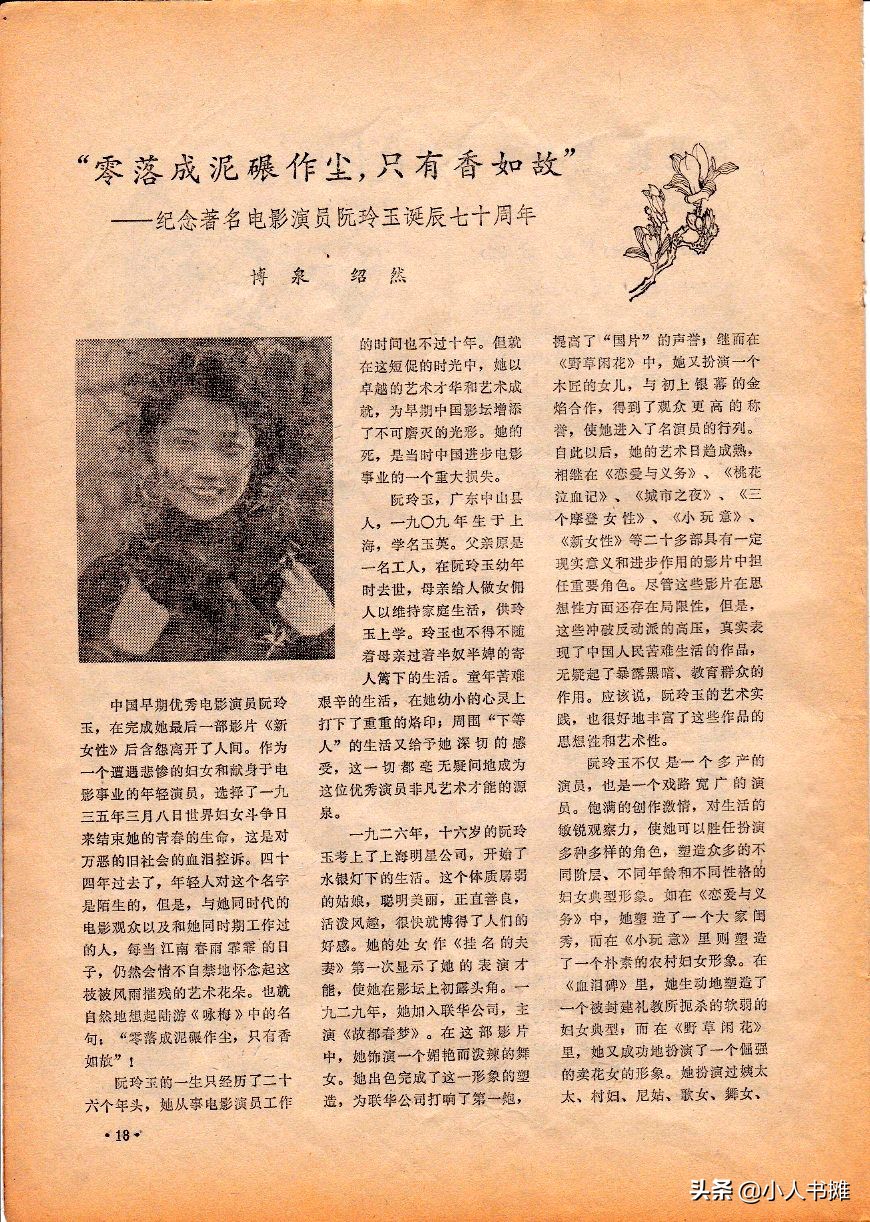 “零落成泥碾作尘，只有香如故”
——纪念著名电影演员阮玲玉诞辰七十周年
博泉 绍然
中国早期优秀电影演员阮玲
玉，在完成她最后一部影片《新
女性》后含怨离开了人间。作为
一个遭遇悲惨的妇女和献身于电
影事业的年轻演员，选择了一九
三五年三月八日世界妇女斗争日
来结束她的青春的生命，这是对
万恶的旧社会的血泪控诉。四十
四年过去了，年轻人对这个名字
是陌生的，但是，与她同时代的
电影观众以及和她同时期工作过
的人，每当江南春雨霏霏的日
子，仍然会情不自禁地怀念起这
枝被风雨摧残的艺术花朵。也就
自然地想起陆游《咏梅》中的名
句：“零落成泥碾作尘，只有香
如故”！
阮玲玉的一生只经历了二十
六个年头，她从事电影演员工作
的时间也不过十年。但就
在这短促的时光中，她以
卓越的艺术才华和艺术成
就，为早期中国影坛增添
了不可磨灭的光彩。她的
死，是当时中国进步电影
事业的一个重大损失。
阮玲玉，广东中山县
人，一九〇九年生于上
海，学名玉英。父亲原是
一名工人，在阮玲玉幼年
时去世，母亲给人做女佣
人以维持家庭生活，供玲
玉上学。玲玉也不得不随
着母亲过着半奴半婢的寄
人篱下的生活。童年苦难
艰辛的生活，在她幼小的心灵上
打下了重重的烙印；周围“下等
人”的生活又给予她深切的感
受，这一切都毫无疑问地成为
这位优秀演员非凡艺术才能的源
泉。
一九二六年，十六岁的阮玲
玉考上了上海明星公司，开始了
水银灯下的生活。这个体质孱弱
的姑娘，聪明美丽，正直善良，
活泼风趣，很快就博得了人们的
好感。她的处女作《挂名的夫
妻》第一次显示了她的表演才
能，使她在影坛上初露头角。一
九二九年，她加入联华公司，主
演《故都春梦》。在这部影片
中，她饰演一个媚艳而泼辣的舞
女。她出色完成了这一形象的塑
造，为联华公司打响了第一炮，
提高了“国片”的声誉；继而在
《野草闲花》中，她又扮演一个
木匠的女儿，与初上银幕的金
焰合作，得到了观众更高的称
誉，使她进入了名演员的行列。
自此以后，她的艺术日趋成熟，
相继在《恋爱与义务》、《桃花
泣血记》、《城市之夜》、《三
个摩登女性》、《小玩意》、
《新女性》等二十多部具有一定
现实意义和进步作用的影片中担
任重要角色。尽管这些影片在思
想性方面还存在局限性，但是，
这些冲破反动派的高压，真实表
现了中国人民苦难生活的作品，
无疑起了暴露黑暗、教育群众的
作用。应该说，阮玲玉的艺术实
践，也很好地丰富了这些作品的
思想性和艺术性。
阮玲玉不仅是一个多产的
演员，也是一个戏路宽广的演
员。饱满的创作激情，对生活的
敏锐观察力，使她可以胜任扮演
多种多样的角色，塑造众多的不
同阶层、不同年龄和不同性格的
妇女典型形象。如在《恋爱与义
务》中，她塑造了一个大家闺
秀，而在《小玩意》里则塑造
了一个朴素的农村妇女形象。在
《血泪碑》里，她生动地塑造了
一个被封建礼教所扼杀的软弱的
妇女典型；而在《野草闲花》
里，她又成功地扮演了一个倔强
的卖花女的形象。她扮演过姨太
太、村妇、尼姑、歌女、舞女、
·18·
头条 @小人书摊